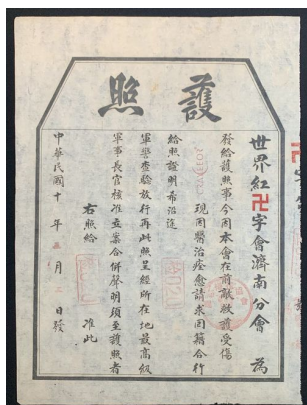 護照
世界紅卍字會濟南分會 為
發給護照事今因本會在前敵救護受傷
現因醫治痊愈請求回籍合行
給照證明希沿途
軍警查驗放行再此照呈經所在地最高級
軍事長官核准並案合併聲明須至護照者
右照給
准此
中華民國十 年 月 日發